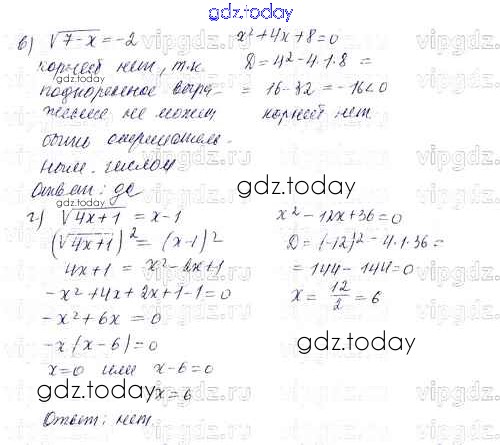 gdz.today
в) √7-x = -2
корней нет, т.к.
gdz.today
подкоренное выра-
жение не может
быть отрицатель-
ным числом
Ответ: да
gdz.today
г) √4x+1 = x-1
(√4x+1)² = (x-1)²
4x+1 = x²-2x+1
-x²+4x+2x+1-1=0
-x²+6x = 0
-x(x-6)=0
x=0 или x-6=0
gdz.today
x=6
Ответ: нет.
x²+4x+8=0
D=4²-4·1·8 =
= 16-32 = -16<0
корней нет
gdz.today
x²-12x+36=0
D=(-12)²-4·1·36=
= 144-144=0
x = 12/2 = 6
gdz.today
vipgdz.ru